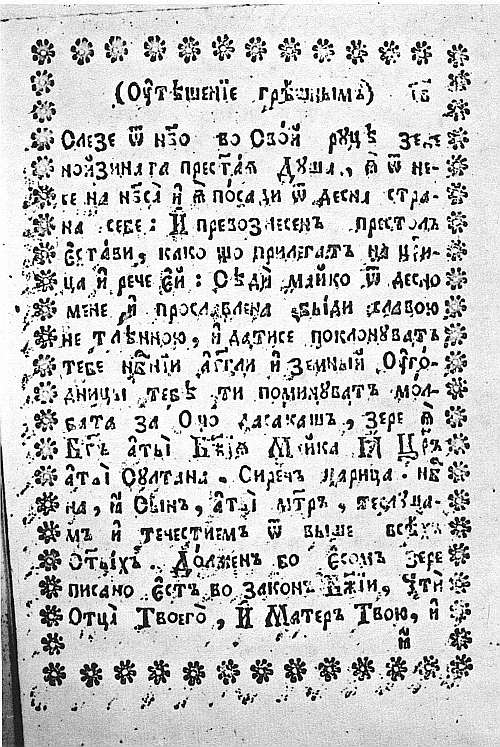 (Оу҆тѣшенїе грѣшнымъ)
Слезе ѿ нб҃о во Свои́ руцѣ зеде
нойзината прест҃аѧ Душа, ѿ не-
се на нб҃са̀ и҆ ѧ҆ посади ѿ десна стра-
на себе: И҆ превознесенъ престолъ
Є҆стави, како що прилегатъ на цр҃и-
ца и҆ рече є҆й: Сѣдѝ майко ѿ десно
мене и҆ прославлена быди славою
не тлѣнною, и҆ датисе поклонуватъ
тебе нб҃нїи а҆гг҃ли и҆ земный Оу҆го-
дницы тебѣ ти поминуватъ мол-
бата за Оно дасакашъ, зере ѧ҆
Бг҃ъ а҆ты̀ Бж҃їѧ Майка И҆ Цр҃ъ
а҆ты̀ Султана. Сиречъ царица.
на, и҆ Сынъ, а҆ты̀ мт҃ръ, теслуша-
мъ и҆ течестиемъ ѿ выше всѣхъ
От҃ыхъ. Долженъ во є҆сомъ зере
писано є҆стъ во законъ Бж҃їи, Чтѝ
Отца̀ Твоего̀, И҆ Матеръ Твою, и҆
и҆